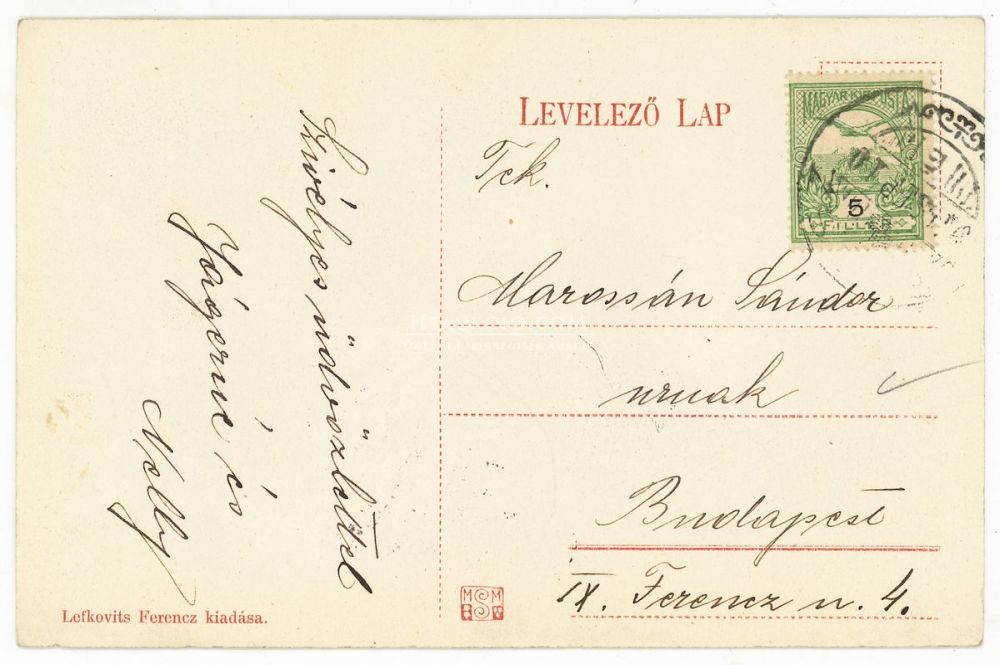 LEVELEZŐ LAP
MAGYAR KIR. POSTA
5
FILLÉR
Szívélyes üdvözlettel
Jágerné és
Nelly
Tek.
Marossán Sándor
urnak
Budapest
IX. Ferencz u. 4.
Lefkovits Ferencz kiadása.
MSM